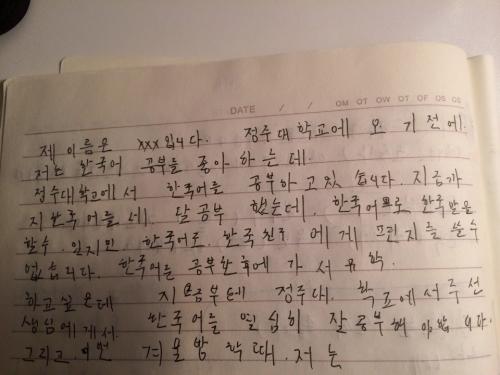 DATE / / OM OT OW OT OF OS OS
제 이름은 xxx입니다. 정주대학교에 오기 전에.
저는 한국어 공부를 좋아 하는데.
정주대학교에서 한국어를 공부하고 있습니다. 지금까
지 한국어를 세 달 공부 했는데. 한국어로 한국말을
할수 있지만 한국어로 한국친구 에게 편지를 쓸수
없습니다. 한국어를 공부한후에 가서 유학.
하고싶은데 지금공부는데 정주대. 학교에서 우선
생님에게서. 한국어를 열심히 잘 공부해 야합니다.
그리고. 이번 겨울방학때. 저는